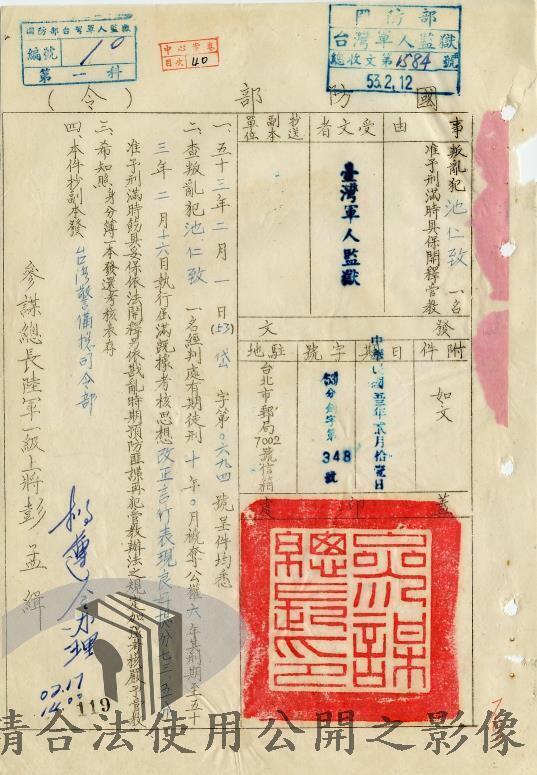 國防部台灣軍人監獄
編號 10
第一科
中心字卷
目次 40
國防部
台灣軍人監獄
總收文第1584號
53.2.12
國防部(令)
事由
叛亂犯池仁致一名
准予刑滿時具保開釋管教
受文者
臺灣軍人監獄
抄送副本單位
附件
如文
發文
日期
中華民國五三年貳月拾壹日
字號
348號
駐地
台北市郵局7002號信箱
蓋印
一、五十三年二月一日(53)岱字第0六九四號呈件均悉
二、查叛亂犯池仁致一名經判處有期徒刑十年0月褫奪公權六年其刑期至五十
三年二月十六日執行屆滿既據考核思想改正言行表現良好
准予刑滿時飭具妥保依法開釋另依戡亂時期預防匪諜再犯管教辦法之規定加強考核嚴予管教
三、希知照身分簿一本發還考核表存
四、本件抄副本發台灣警備總司令部
參謀總長陸軍一級上將彭孟緝
02.17
14.00
119
請合法使用公開之影像